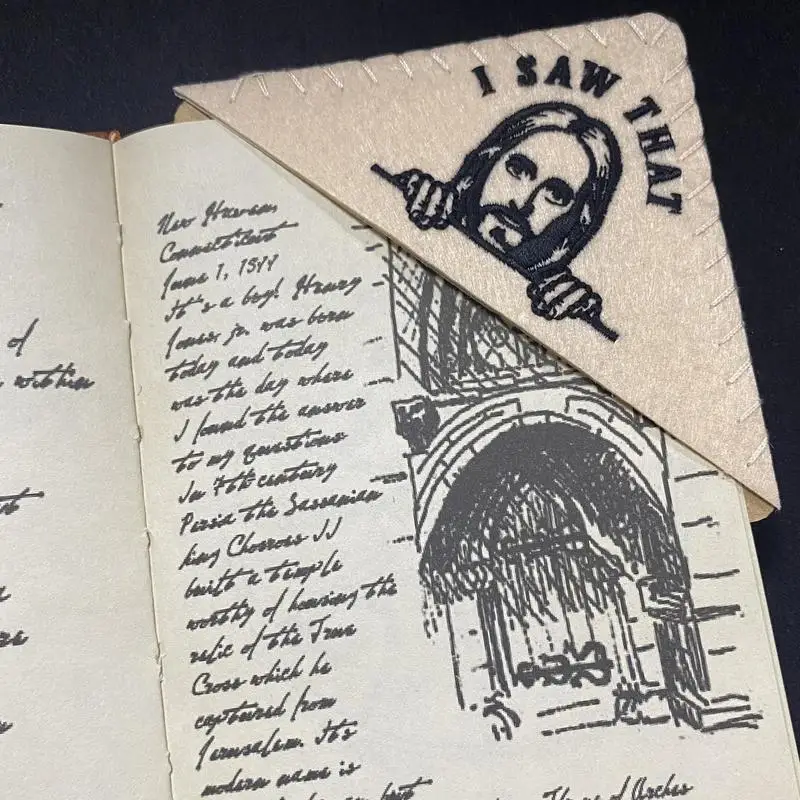 I SAW THAT
of
within
New Haven,
Connecticut
June 1, 1899
It's a boy! Henry
Jones, jr. was born
today and today
was the day where
I found the answer
to my questions
In 7th century
Persia the Sassanian
king Chosroes II
built a temple
worthy of housing the
relic of the True
Cross which he
captured from
Jerusalem. It's
modern name is
but
of Arches